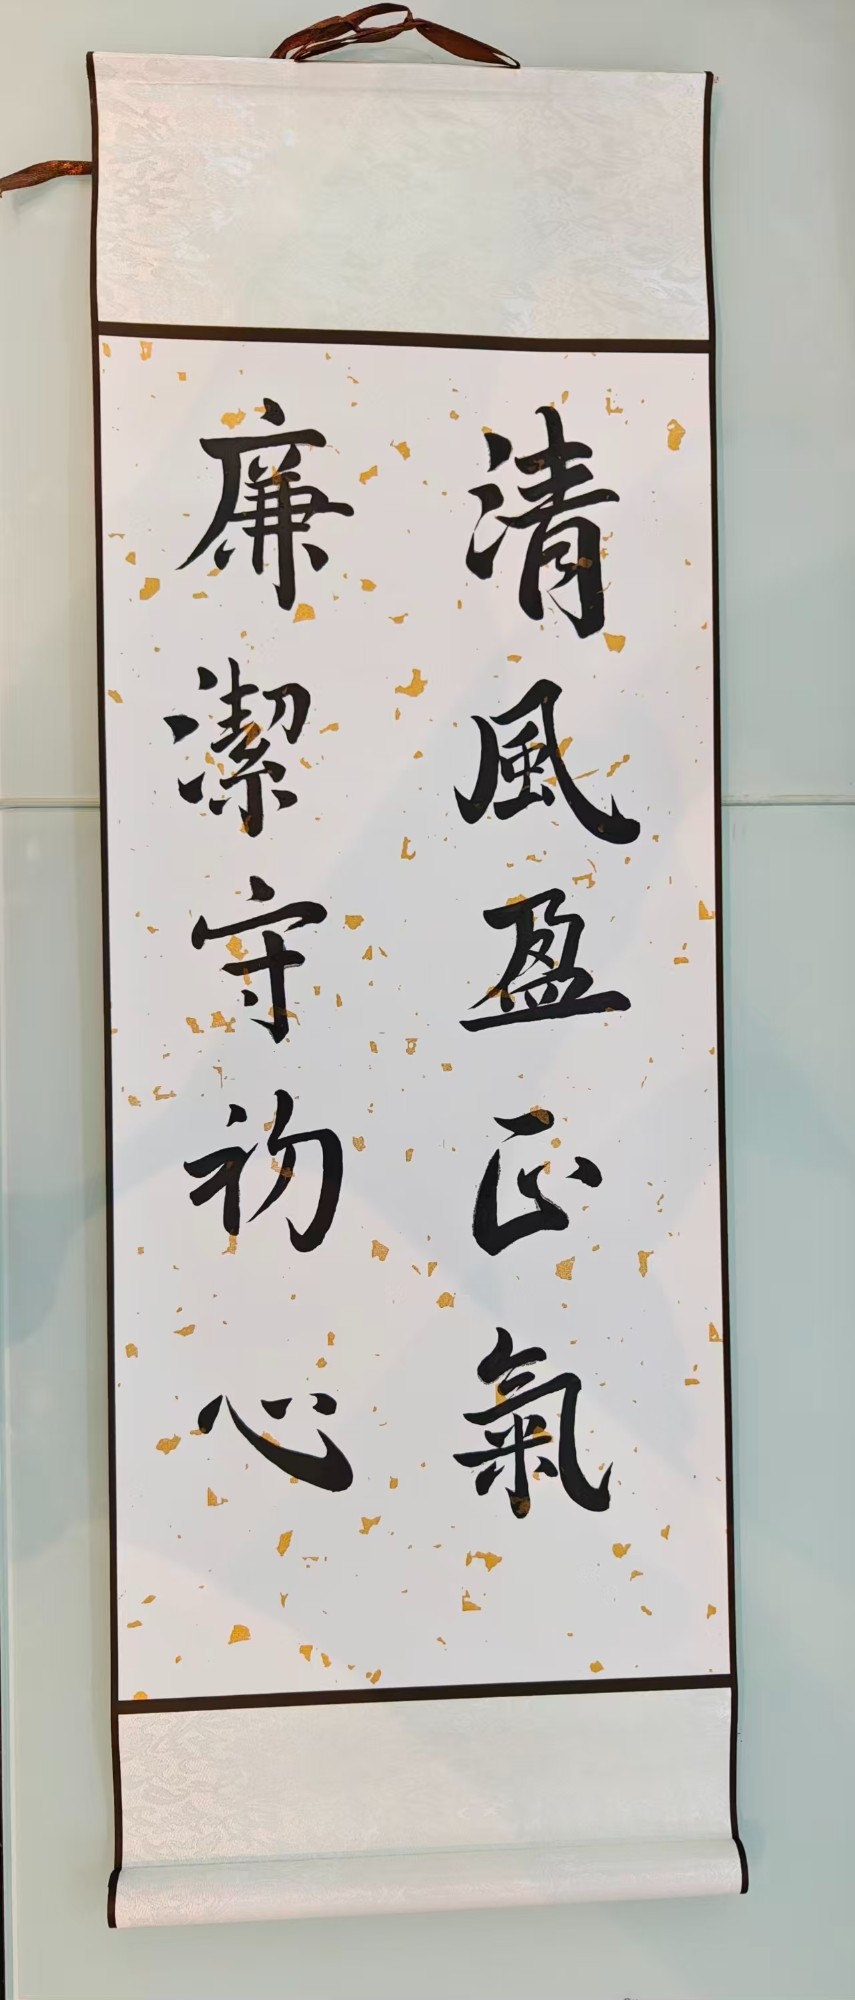 清風盈正氣
廉潔守初心